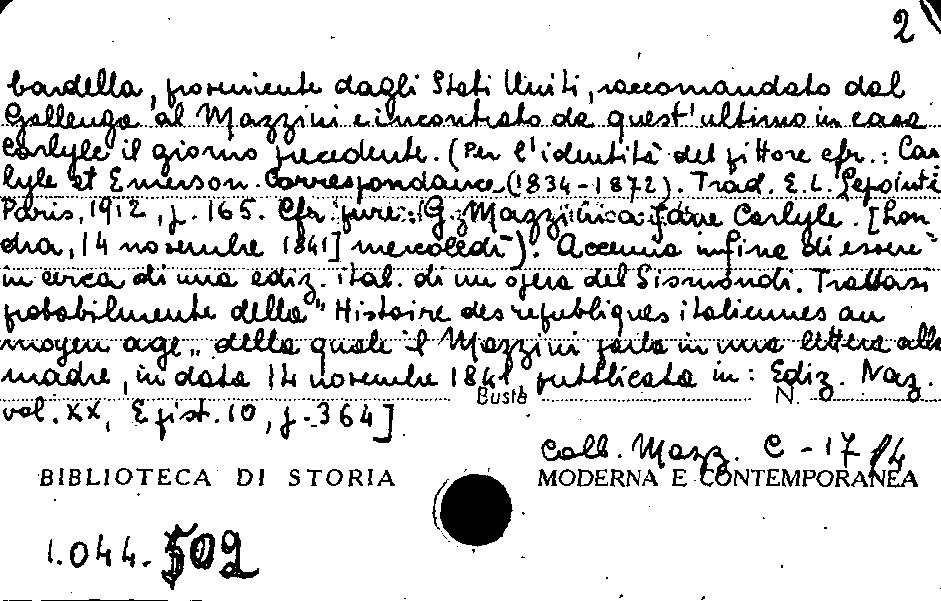 2
bardella, proveniente dagli Stati Uniti, raccomandato dal
Gallenga al Mazzini e incontrato da quest'ultimo in casa
Carlyle il giorno precedente. (Per l'identità del pittore cfr.: Car
lyle et Emerson. Correspondance (1834-1872). Trad. E.L. Lepointe
Paris, 1912, p. 165. Cfr. pure: G. Mazzini a Jane Carlyle. [Lon
dra, 14 novembre 1841] mercoledì). Accenna infine di essere
in cerca di una ediz. ital. di un opera del Sismondi. Trattasi
probabilmente della "Histoire des republiques italiennes au
moyen age" della quale il Mazzini parla in una lettera alla
madre, in data 14 novembre 1841, pubblicata in: Ediz. Naz.
vol. XX, Epist. 10, p. 364]
Busta N.
Coll. Mazz. C - 17/14
BIBLIOTECA DI STORIA MODERNA E CONTEMPORANEA
1.044.502